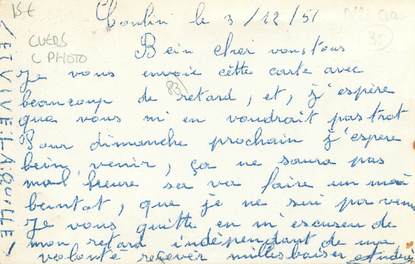 15€
CUERS
C PHOTO
83
Toulin le 3/12/51
Bein cher vous tous
Je vous envoie cette carte avec
beaucoup de retard, et, j'espère
que vous m'en voudrait pas trot
Pour dimanche prochain j'espere
bein venir, ça ne saura pas
malheureu sa va faire un moi
bentot, que je ne sui pas venu
Je vous quitte en m'escusen de
mon retard indépendant de ma
volonté recever milles baiser
ET VIVE L'AQUILLE!